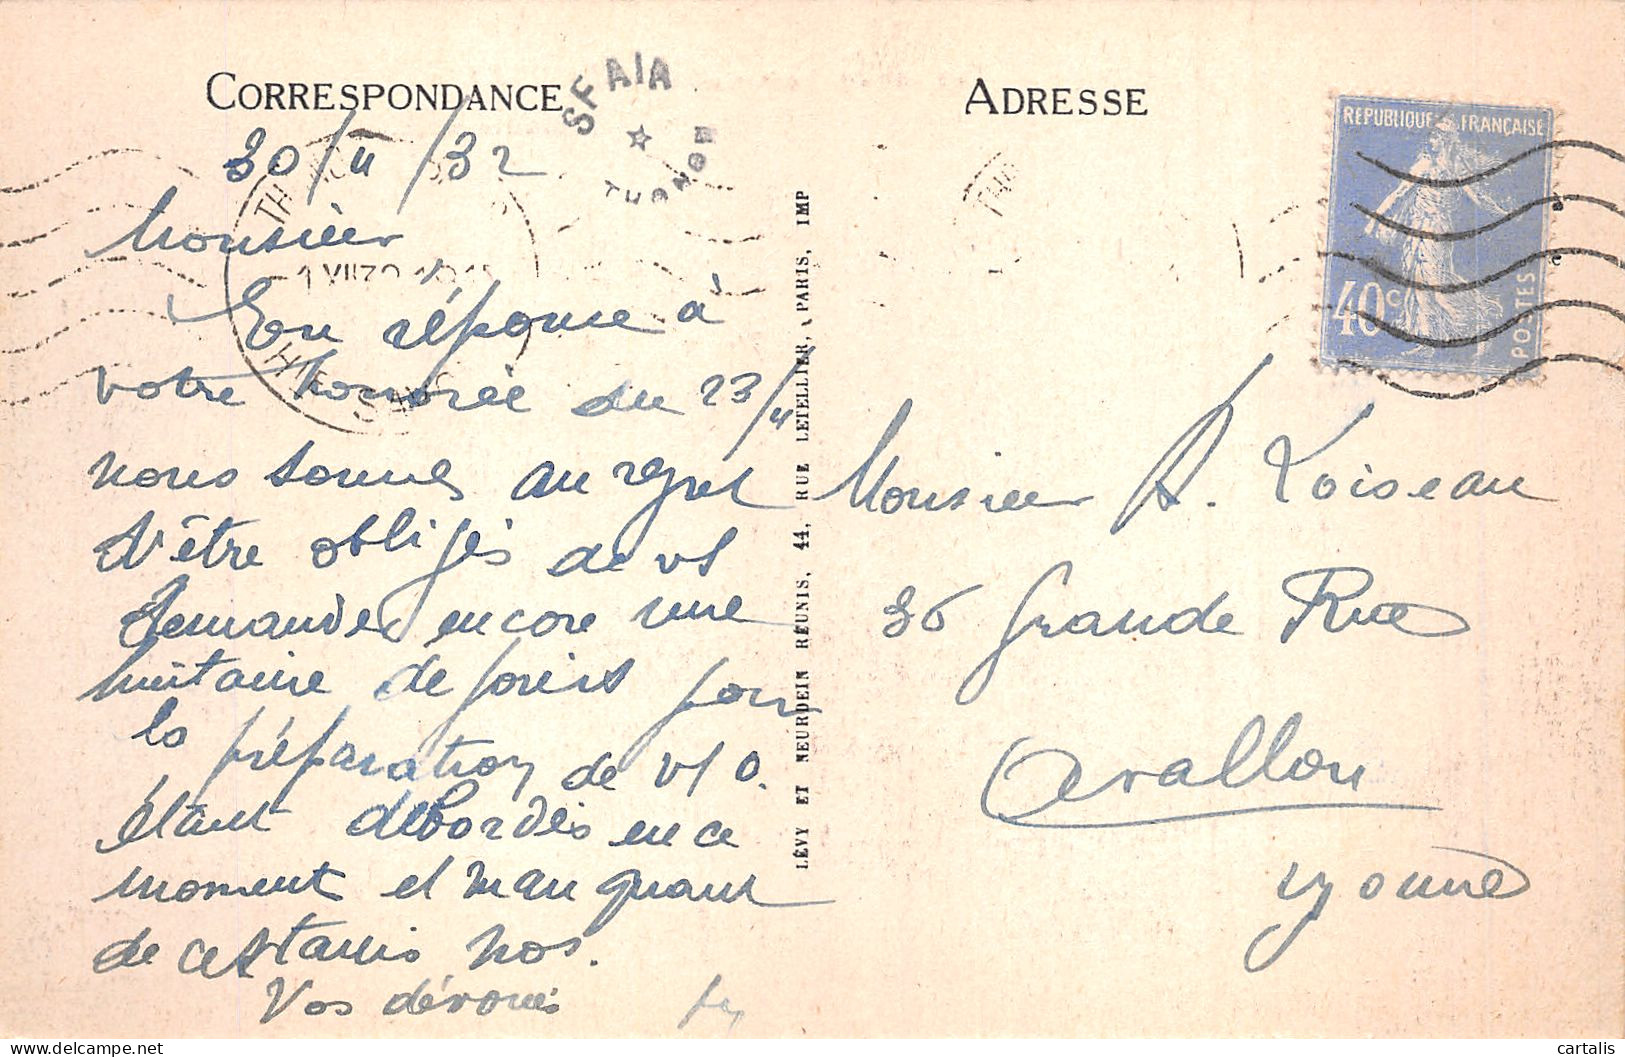 CORRESPONDANCE
SFAIA
THONON
30/11/32
Monsieur
En réponse à
votre honorée du 23/11
nous sommes au regret
d'être obligés de vs
demander encore une
huitaine de jours pour
la préparation de vs O.
étant débordés en ce
moment et manquant
de certains nos.
Vos dévoués
LÉVY ET NEURDEIN RÉUNIS, 44, RUE LETELLIER, PARIS, IMP
ADRESSE
RÉPUBLIQUE FRANÇAISE
40c
POSTES
Monsieur A. Loiseau
36 Grande Rue
Avallon
Yonne
delcampe.net
cartalis